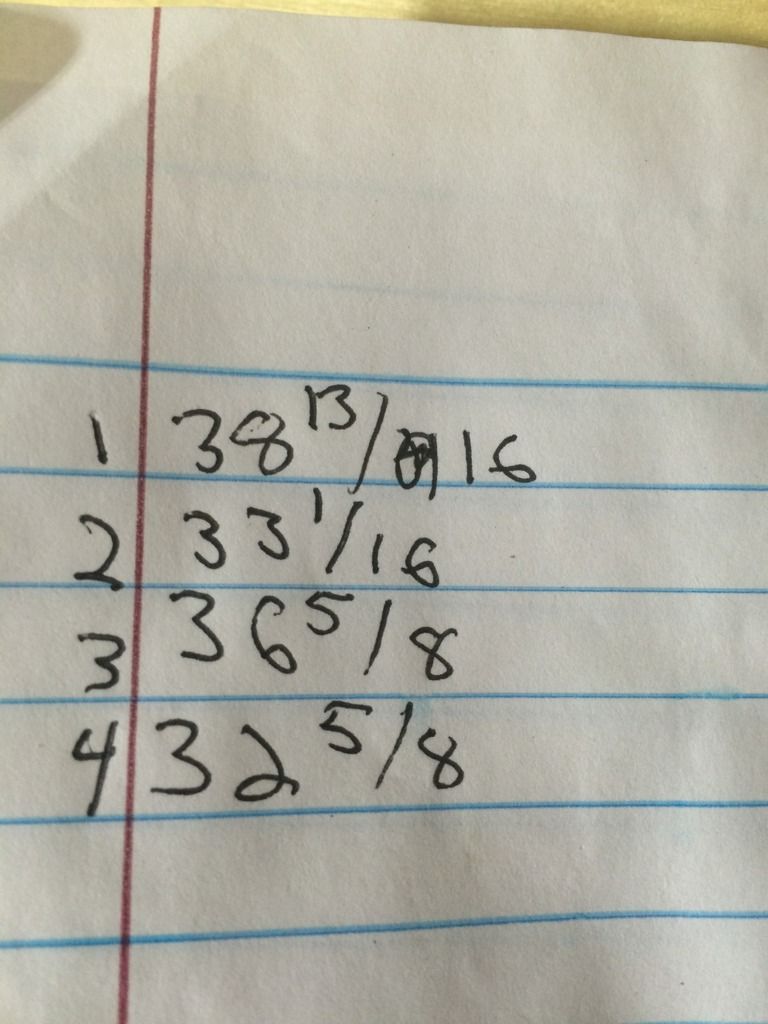 1 38 13/16
2 33 1/16
3 36 5/8
4 32 5/8